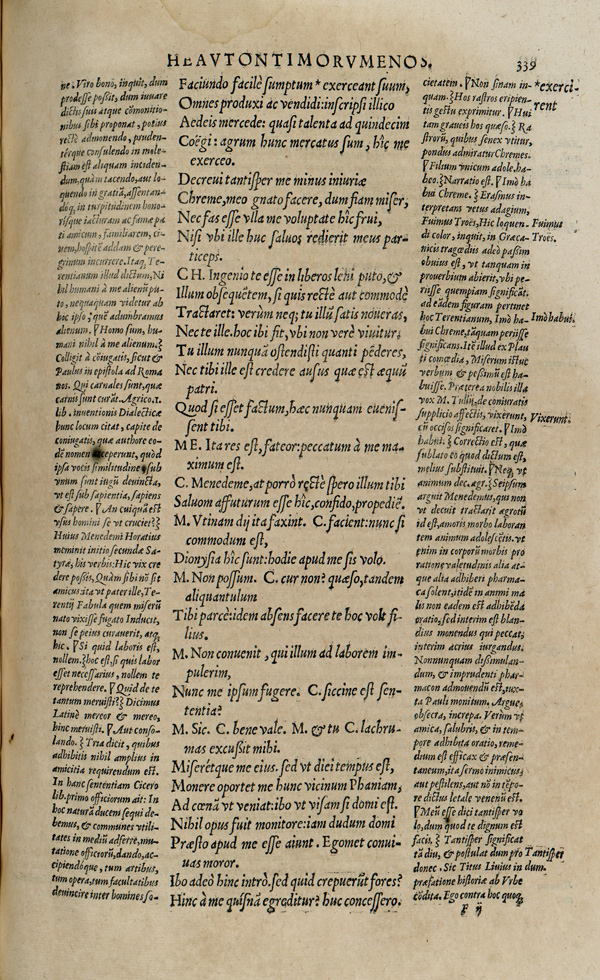 HEAVTONTIMORVMENOS. 339
ne. Viro bono, inquit, dum
prodesse possit, dum iuuare
dictis suis atque cōmonitio-
nibus sibi proponat, potius
rectè admonendo, pruden-
térque consulendo in mole-
stiam est aliquam inciden-
dum, quàm tacendo, aut lo-
quendo in gratiā, assentan-
doq, in turpitudinem hono-
risque iacturam ac famæ pa
ti amicum, familiarem, ci-
uem, hospitē addam & pere-
grinum incurrere. Itaq, Te-
rentianum illud dictum, Ni
hil humani à me alienū pu-
to, nequaquam videtur ab
hoc ipso, quē adumbramus
alienum. ¶Homo sum, hu-
mani nihil à me alienum.
Colligit à cōiugatis, sicut &
Paulus in epistola ad Roma
nos. Qui carnales sunt, quæ
carnis sunt curāt. Agrico. 1.
lib. inuentionis Dialecticæ
hunc locum citat, capite de
coniugatis, quæ authore eo-
dē nomen acceperunt, quòd
ipsa vocis similitudine sub
vnum sunt iugū deuincta,
vt est sub sapientia, sapiens
& sapere. ¶An cuiquā est
vsus homini se vt cruciet?
Huius Menedemi Horatius
meminit initio secundæ Sa-
tyræ, his verbis: Hic vix cre
dere possis, Quàm sibi nō sit
amicus: ita vt pater ille, Te-
rentij Fabula quem miserū
nato vixisse fugato Inducit,
non se peius cruciauerit, atq,
hic. ¶Si quid laboris est,
nollem. hoc est, si quis labor
esset necessarius, nollem te
reprehendere. ¶Quid de te
tantum meruisti? Dicimus
Latinè mereor & mereo,
hinc meruisti. ¶Aut conso-
lando. Tria dicit, quibus
adhibitis nihil amplius in
amicitia requirendum est.
In hanc sententiam Cicero
lib. primo officiorum ait: In
hoc naturā ducem sequi de-
bemus, & communes vtili-
tates in mediū adferre, mu-
tatione officiorū, dando, ac-
cipiendóque, tum artibus,
tum opera, tum facultatibus
deuincire inter homines so-
Faciundo facilè sumptum * exerceant suum,
Omnes produxi ac vendidi: inscripsi illico
Aedeis mercede: quasi talenta ad quindecim
Coëgi: agrum hunc mercatus sum, hîc me
exerceo.
Decreui tantisper me minus iniuriæ
Chreme, meo gnato facere, dum fiam miser,
Nec fas esse vlla me voluptate hîc frui,
Nisi vbi ille huc saluos redierit meus par-
ticeps.
CH. Ingenio te esse in liberos leni puto, &
Illum obsequētem, si quis rectè aut commodè
Tractaret: verùm neq; tu illū satis noueras,
Nec te ille. hoc ibi fit, vbi non verè viuitur.
Tu illum nunquā ostendisti quanti pēderes,
Nec tibi ille est credere ausus quæ est æquū
patri.
Quod si esset factum, hæc nunquam euenis-
sent tibi.
ME. Ita res est, fateor: peccatum à me ma-
ximum est.
C. Menedeme, at porrò rectè spero illum tibi
Saluom affuturum esse hîc, confido, propediē.
M. Vtinam dij ita faxint. C. facient: nunc si
commodum est,
Dionysia hîc sunt: hodie apud me sis volo.
M. Non possum. C. cur non? quæso, tandem
aliquantulum
Tibi parce: idem absens facere te hoc volt fi-
lius.
M. Non conuenit, qui illum ad laborem im-
pulerim,
Nunc me ipsum fugere. C. siccine est sen-
tentia?
M. Sic. C. bene vale. M. & tu C. lachru-
mas excussit mihi.
Miserétque me eius. sed vt diei tempus est,
Monere oportet me hunc vicinum Phaniam,
Ad cœnā vt veniat: ibo vt visam si domi est.
Nihil opus fuit monitore: iam dudum domi
Præsto apud me esse aiunt. Egomet conui-
uas moror.
Ibo adeò hinc intrò. sed quid crepuerūt fores?
Hinc à me quisnā egreditur? huc concessero.
cietatem. ¶Non sinam in-
quam. Hos rastros eripien-
tis gestu exprimitur. ¶Hui
tam graueis hos quæso. Ra
strorū, quibus senex vtitur,
pondus admiratur Chremes.
¶Filium vnicum adole. ha-
beo. Narratio est. ¶Imò ha
bui Chreme. Erasmus in-
terpretans vetus adagium,
Fuimus Troës, Hic loquen-
di color, inquit, in Græca-
nicis tragœdiis adeò passim
obuius est, vt tanquam in
prouerbium abierit, vbi pe-
riisse quempiam significāt.
ad eādem figuram pertinet
hoc Terentianum, Imò ha-
bui Chreme, tāquam periisse
significans. Itē illud ex Plau
ti comœdia, Miserum istuc
verbum & pessimū est ha-
buisse. Præterea nobilis illa
vox M. Tullij, de coniuratis
supplicio affectis, vixerunt,
cū occisos significaret. ¶Imò
habui. Correctio est, quæ
sublato eo quod dictum est,
melius substituit. ¶Neq, vt
animum dec. ægr. Seipsum
arguit Menedemus, quòd non
vt decuit tractarit ægrotū
id est, amoris morbo laboran
tem animum adolescētis. vt
enim in corporū morbis pro
ratione valetudinis alia at-
que alia adhiberi pharma-
ca solent, itidē in animi ma
lis non eadem est adhibēda
oratio, sed interim est blan-
dius monendus qui peccat,
interim acrius iurgandus.
Nonnunquam dissimulan-
dum, & imprudenti phar-
macon admouendū est, iux-
ta Pauli monitum. Argue,
obsecra, increpa. Verùm vt
amica, salubris, & in tem-
pore adhibita oratio, reme-
dium est efficax & præsen-
taneum, ita sermo inimicus,
aut pestilens, aut nō in tēpo-
re dictus letale venenū est.
¶Meū esse dici tantisper vo
lo, dum quod te dignum est
facis. Tantisper significat
tā diu, & postulat dum pro
donec. Sic Titus Liuius in
præfatione historiæ ab Vrbe
cōdita. Ego contra hoc quoq,
*exerci-
rent
Fuimus
Troës.
Imò habui.
Vixerunt.
Tantisper
dum.
F ij